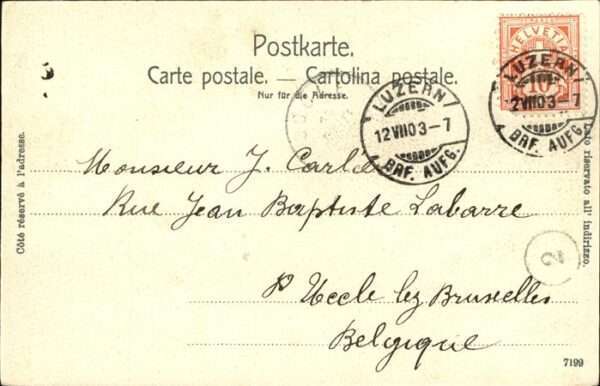 Postkarte.
Carte postale. — Cartolina postale.
Nur für die Adresse.
HELVETIA
10
LUZERN
12VII03-7
BRF. AUFG.
LUZERN
12VII03-7
BRF. AUFG.
Côté réservé à l'adresse.
Lato riservato all' indirizzo.
Monsieur J. Carlé
Rue Jean Baptiste Labarre
P Uccle lez Bruxelles
Belgique
2
7199